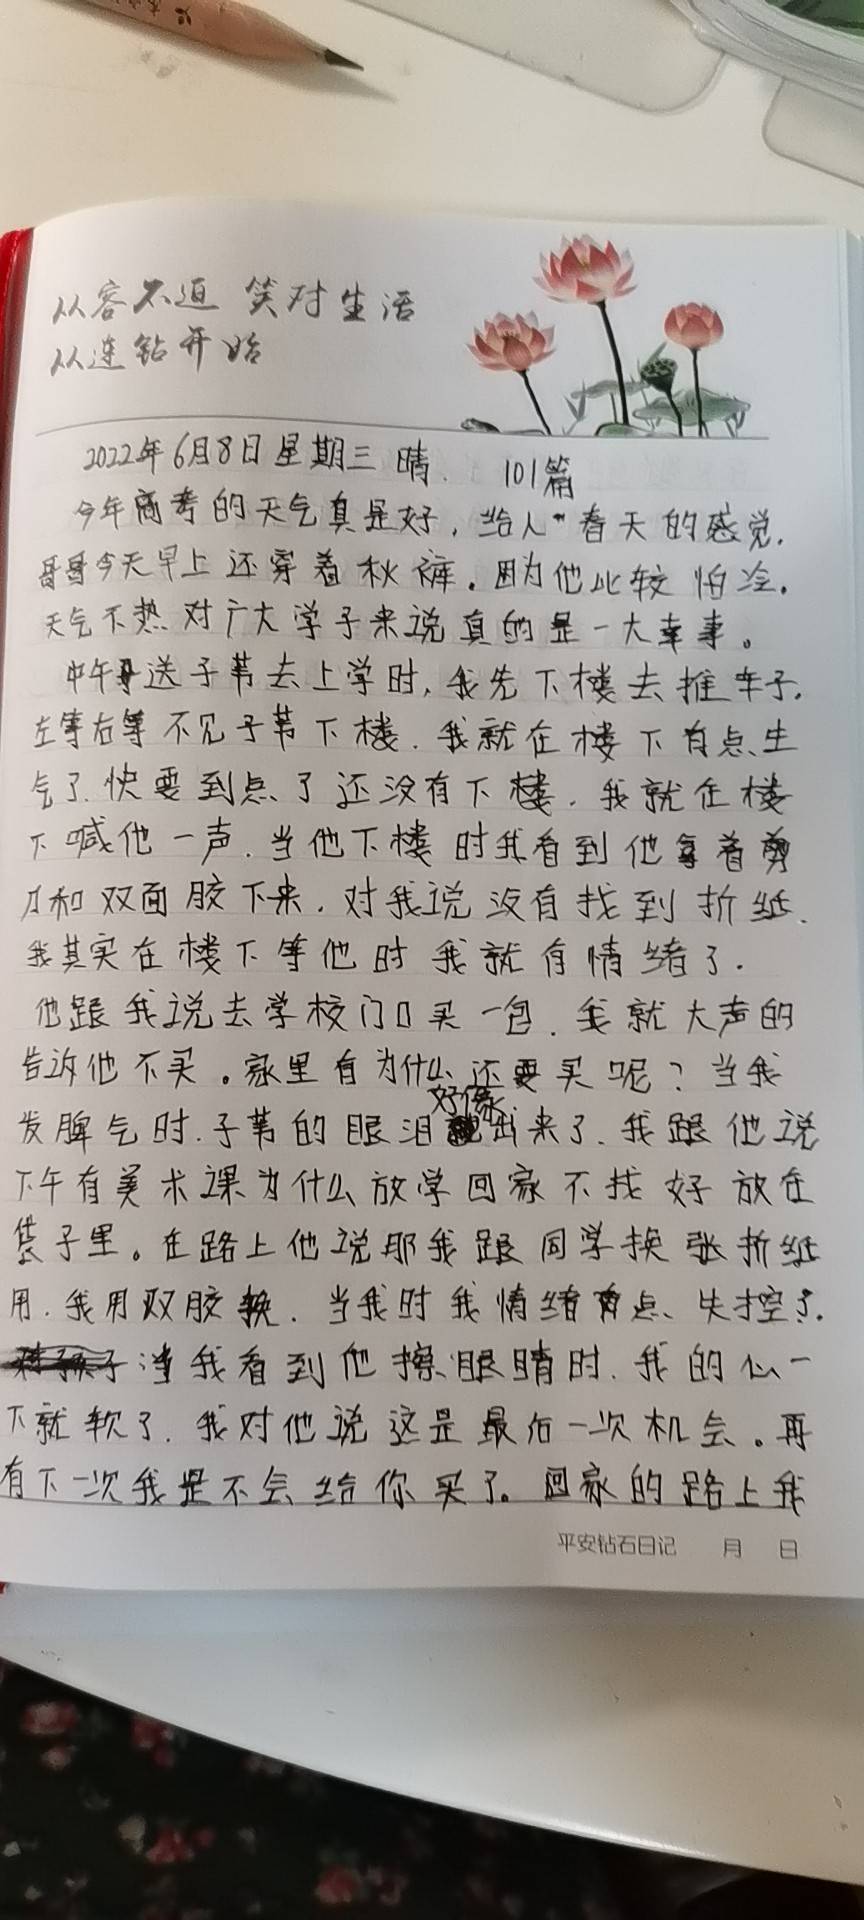 从容不迫 笑对生活
从连钻开始
2022年6月8日星期三 晴. 101篇
今年高考的天气真是好,给人"春天的感觉.
哥哥今天早上还穿着秋裤。因为他比较怕冷.
天气不热对广大学子来说真的是一大幸事。
中午送子苇去上学时,我先下楼去推车子.
左等右等不见子苇下楼.我就在楼下有点生
气了.快要到点了还没有下楼.我就在楼
下喊他一声.当他下楼时我看到他拿着剪
刀和双面胶下来.对我说没有找到折纸.
我其实在楼下等他时我就有情绪了.
他跟我说去学校门口买一包.我就大声的
告诉他不买。家里有为什么还要买呢?当我
发脾气时.子苇的眼泪好像出来了.我跟他说
下午有美术课为什么放学回家不找好放在
袋子里。在路上他说那我跟同学换张折纸
用.我用双胶换.当我时我情绪有点失控了.
当我看到他擦眼睛时.我的心一
下就软了.我对他说这是最后一次机会。再
有下一次我是不会给你买了。回家的路上我
平安钻石日记 月 日